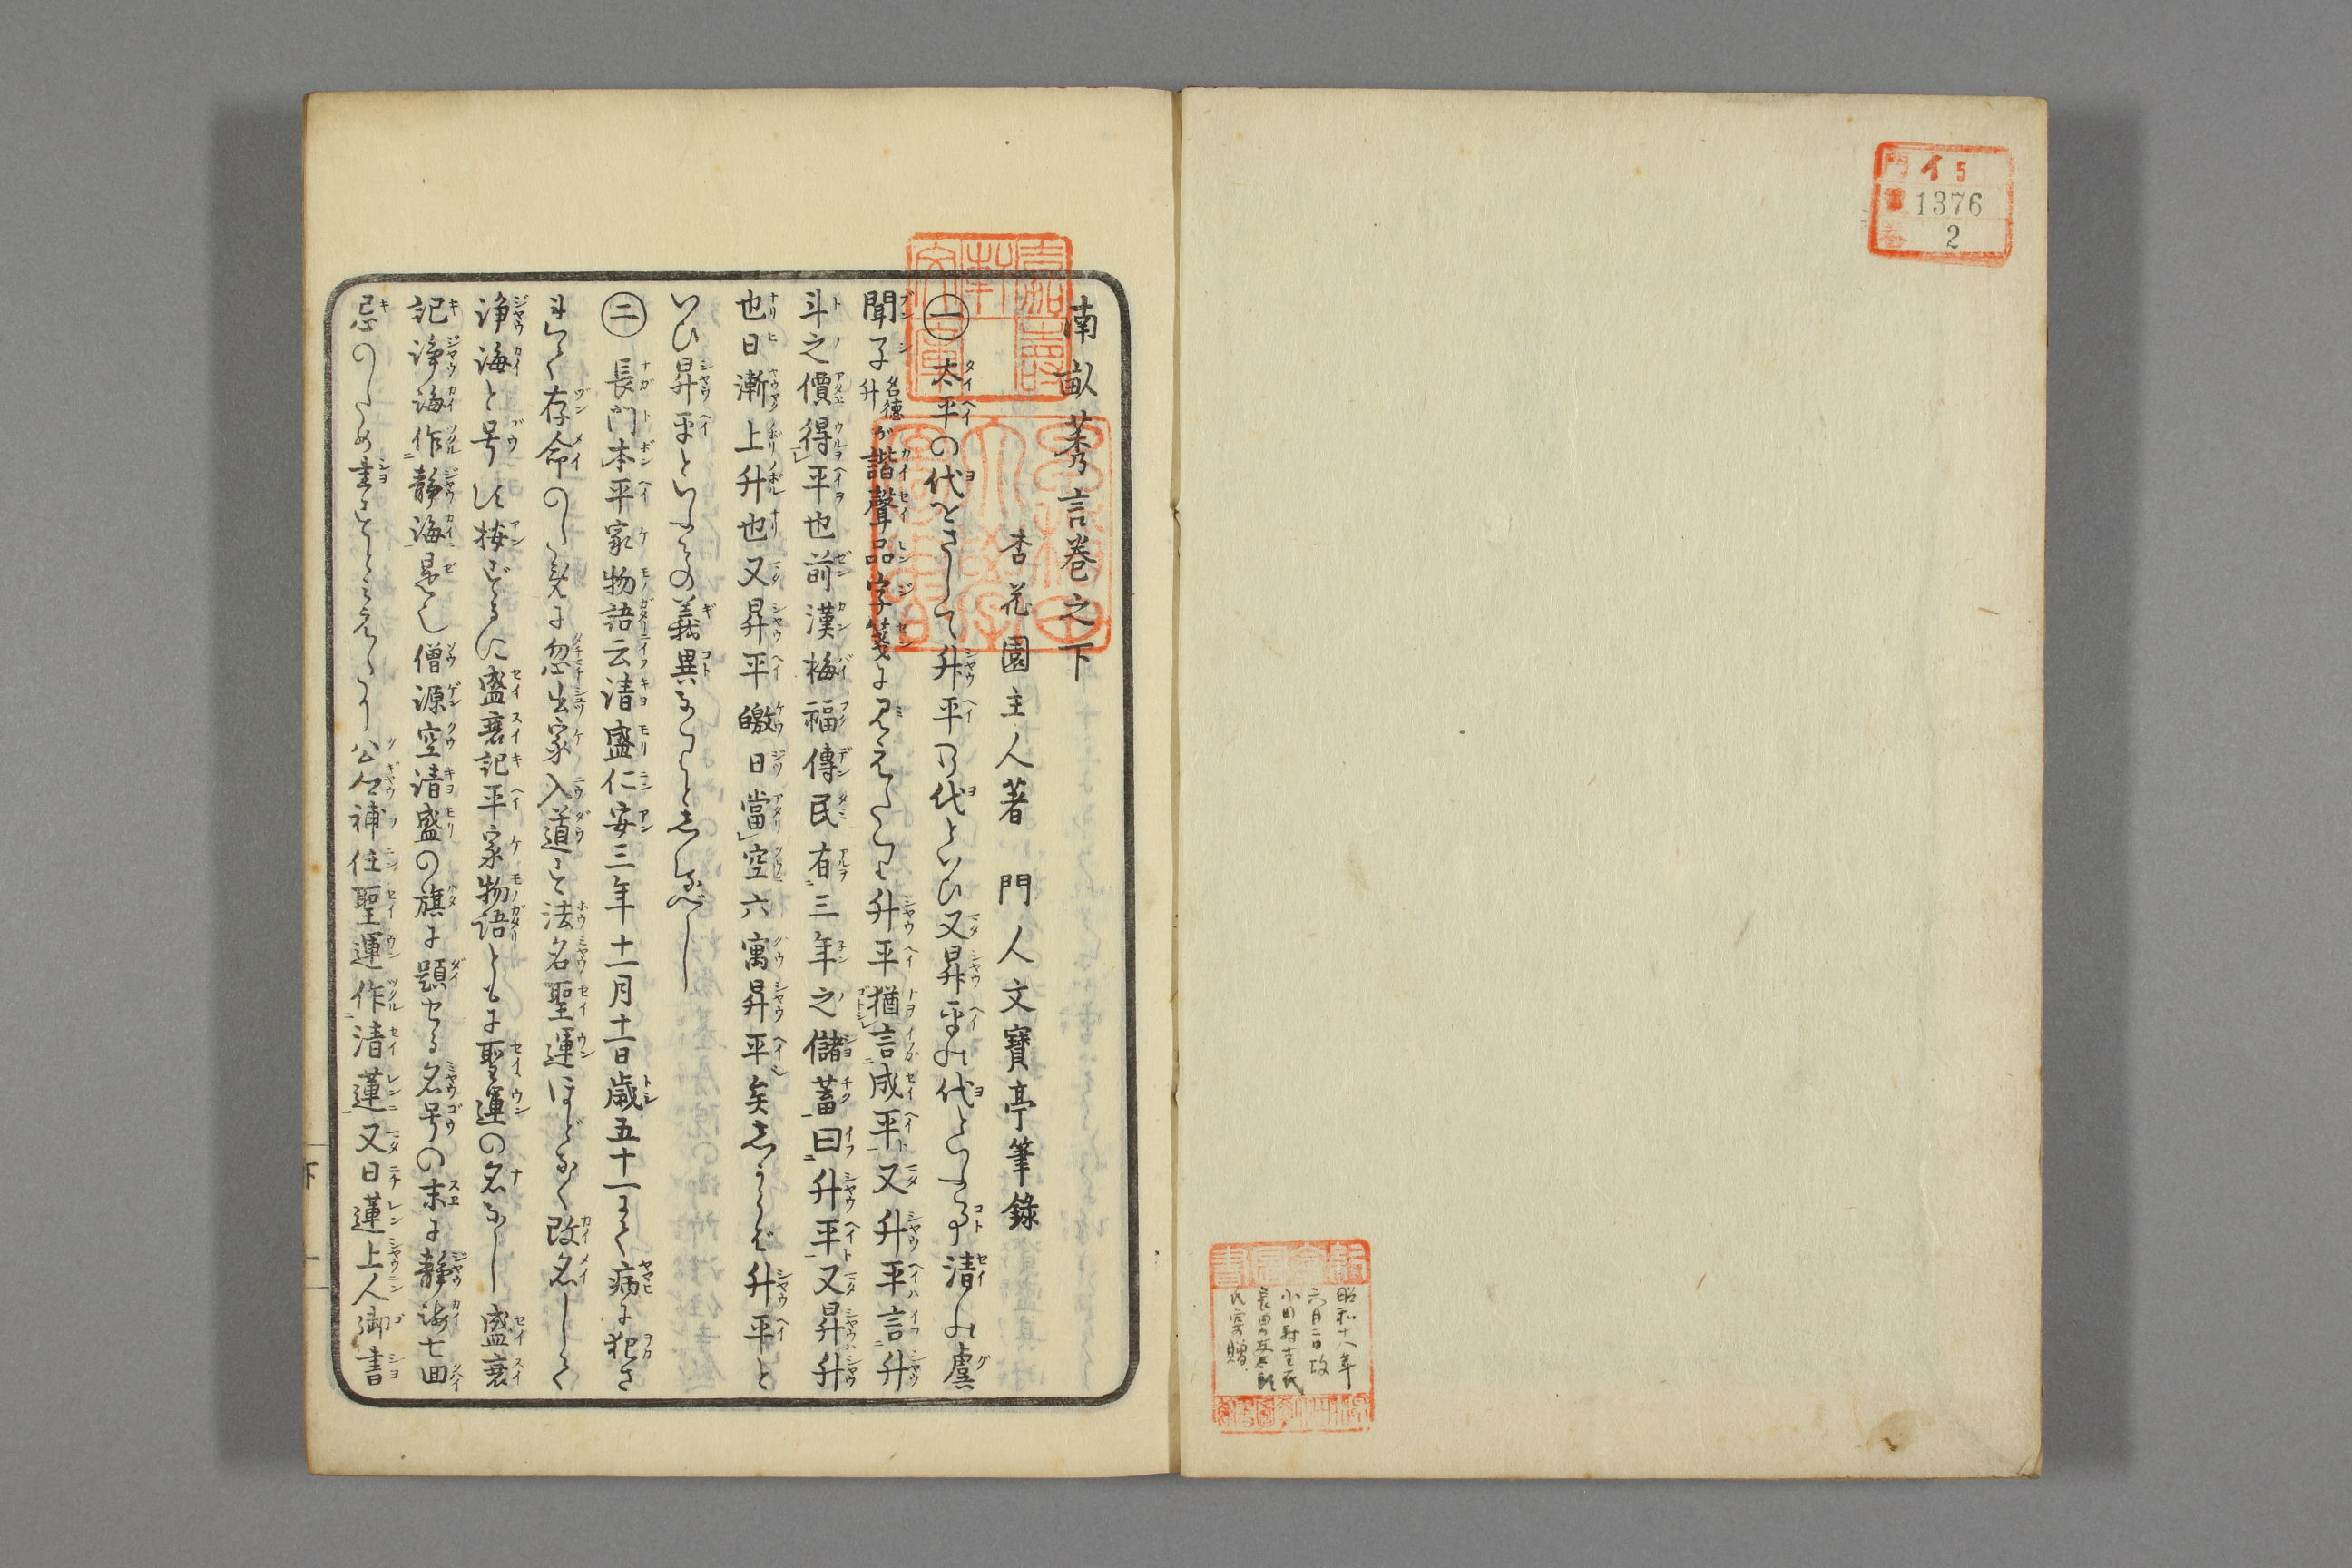 門 イ 5
1376
2
昭和十八年
六月二日故
小田村壴氏
氏寄贈
南畝莠言巻之下
杏花園主人著 門人文寶亭筆錄
㊀太平の代をさして升平の代といひ又昇平の代といふ事清の虞
聞子名德升が諧聲品字箋に見えたり升平猶言成平又升平言升
斗之價得平也前漢梅福傳民有三年之儲蓄曰升平又昇升
也日漸上升也又昇平皦日當空六寓昇平矣しからば升平と
いひ昇平といふその義異なることしるべし
㊁長門本平家物語云清盛仁安三年十一月十一日歳五十一にて病に犯さ
れて存命のために忽出家入道す法名聖運ほどなく改名して
淨海と号す按ずるに盛衰記平家物語ともに聖運の名なし盛衰
記淨海作靜海是也僧源空清盛の旗に題せる名号の末に靜海七回
忌のため書すとみえたり公卿補任聖運作清蓮又日蓮上人御書
下 一